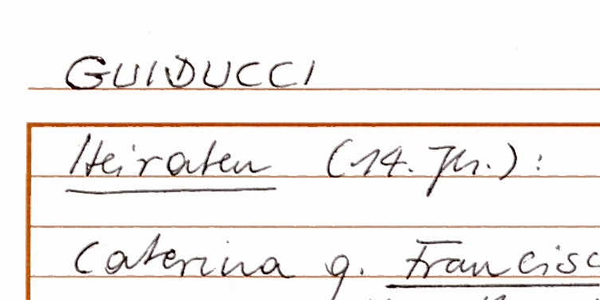 GUIDUCCI
Heiraten (14. Jh.):
Caterina q. Francisc